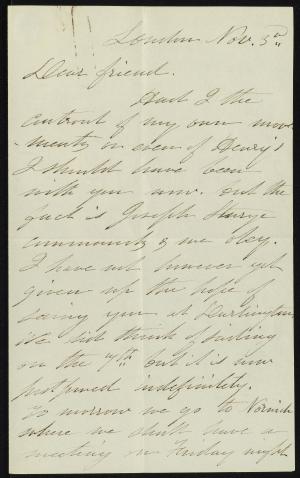 London Nov. 3rd
Dear friend.
Had I the
control of my own move
ments or even of Henry's
I should have been
with you now. But the
fact is Joseph Sturge
commands & we obey.
I have not however yet
given up the hope of
seeing you at Darlington
We did think of sailing
on the 4th but it is now
postponed indefinitely.
To morrow we go to Norwich
where we shall have a
meeting on Friday night